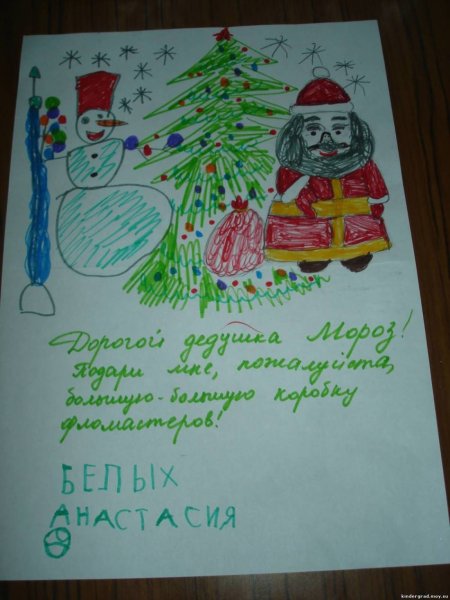 Дорогой дедушка Мороз!
Подари мне, пожалуйста,
большую-большую коробку
фломастеров!
БЕЛЫХ
АНАСТАСИЯ
kindergrad.moy.su